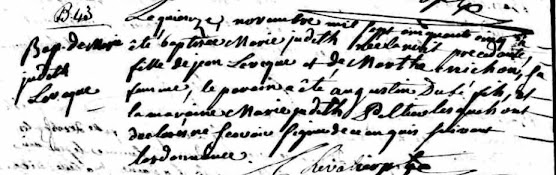 B.43
Le quinze novembre mil sept cinquante cinq a
Bap. de Marie été baptisée Marie judith née la nuit precedente,
judith fille de jean Leveque et de Marthe michon, sa
Leveque femme, le parain a été augustin Dubé fils, et
la maraine Marie judith lesquels ont
declaré ne scavoir signer de ce enquis suivant
lordonnance
Chevalier ptre